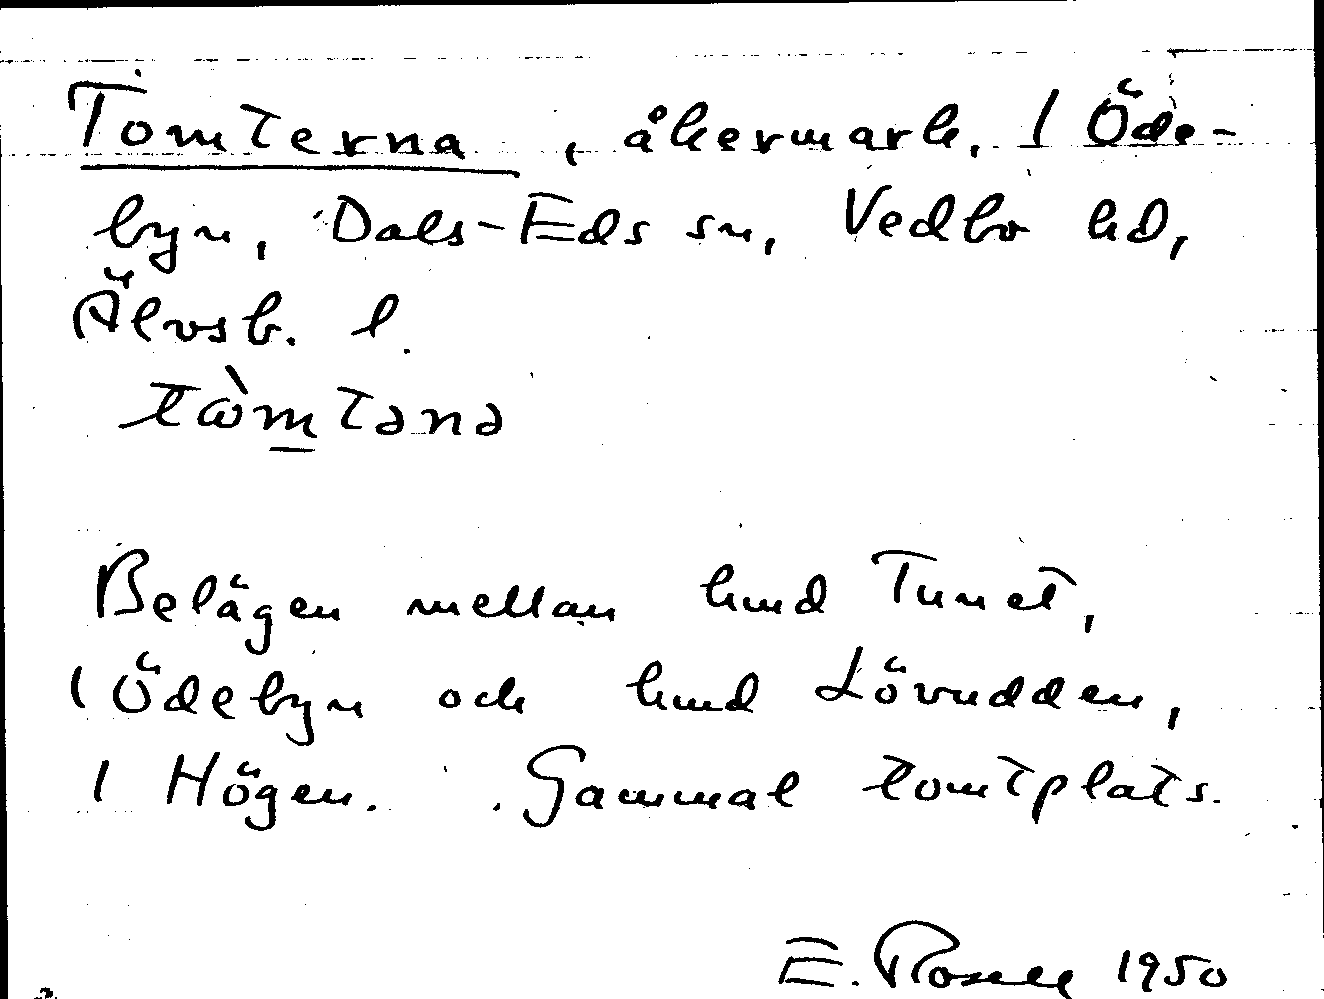 Tomterna, åkermark, 1 Öde-
byn, Dals-Eds sn, Vedbo hd,
Älvsb. l.
tὼmtənə
Belägen mellan hmd Tunet,
1 Ödebyn och hmd Lövudden,
1 Högen. Gammal tomtplats.
E. Rosell 1950